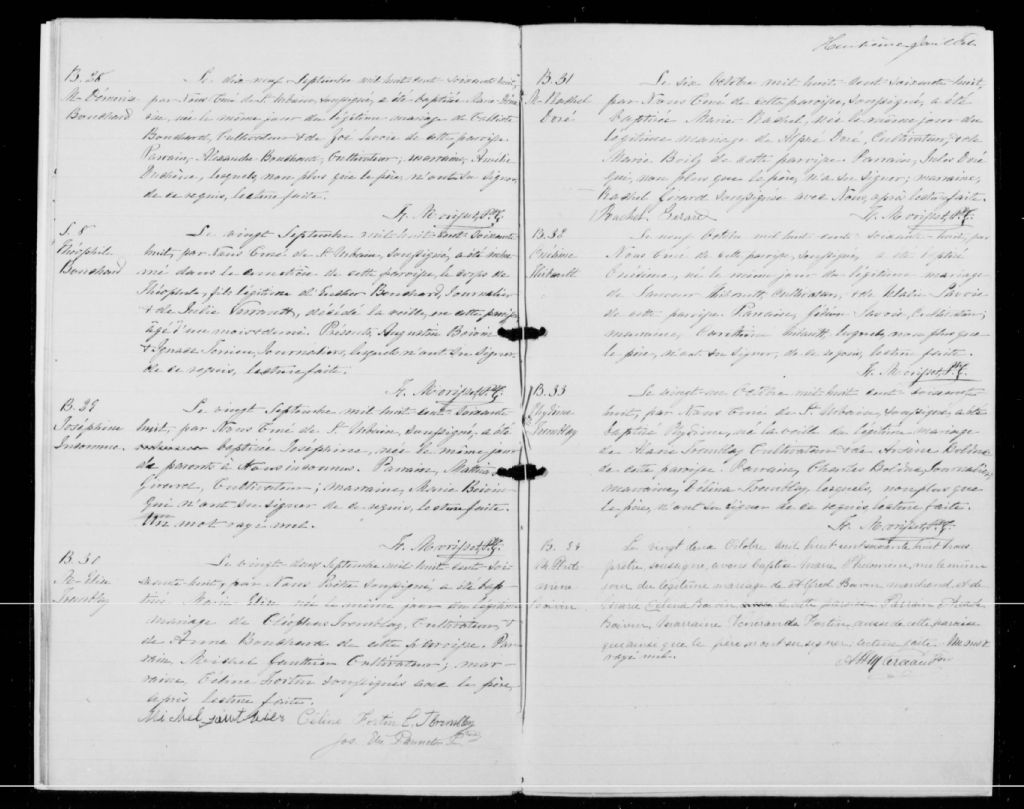 B. 28
M. Démérise
Bouchard
Le dix neuf Septembre mil huit cent soixante huit,
par Nous Curé de St Urbain, soussigné, a été baptisée Marie Démé
rise, née le même jour du légitime mariage de
Bouchard, Cultivateur & de Zoé Savoie de cette paroisse.
Parrain, Alexandre Bouchard, Cultivateur; marraine, Amélie
Duchène, lesquels non plus que le père, n'ont su signer,
de ce requis, lecture faite.
Fr. Morisset, Ptre C.
S. 8
Théophile
Bouchard
Le vingt Septembre mil huit cent soixante
huit, par Nous Curé de St Urbain, soussigné, a été inhu
mé dans le cimetière de cette paroisse, le corps de
Théophile, fils légitime d' Bouchard, Journalier
& de Julie décédé la veille, en cette paroisse
âgé d'un mois & demi. Présents, Augustin Boivin
& Ignace Journaliers, lesquels n'ont su signer
de ce requis, lecture faite.
Fr. Morisset, Ptre C.
B. 29
Joséphine
Inconnue.
Le vingt Septembre mil huit cent soixante
huit, par Nous Curé de St Urbain, soussigné, a été
baptisée Joséphine, née le même jour
de parents à Nous inconnus. Parrain, Mathias
Girard, Cultivateur; marraine, Marie Boivin
qui n'ont su signer de ce requis, lecture faite.
Un mot rayé nul.
Fr. Morisset, Ptre C.
B. 30
M. Elise
Tremblay
Le vingt deux Septembre mil huit cent soi
xante huit, par Nous Prêtre soussigné, a été bap
tisé Marie Elise née le même jour du légitime
mariage de Cléophas Tremblay, Cultivateur, &
de Anne Bouchard de cette paroisse. Par
rain, Michel Gauthier Cultivateur; mar
raine, Céline Fortin soussignés avec le père,
après lecture faite.
Michel gauthier Céline Fortin C. Trembley
Jos. Ptre
Huitième feuillet
B. 31
M. Rachel
Doré
Le six Octobre mil huit cent soixante huit,
par Nous Curé de cette paroisse, soussigné, a été
baptisée Marie Rachel, née le même jour du
légitime mariage de Doré, Cultivateur, & de
Marie Boily de cette paroisse. Parrain, Jules Doré
qui, non plus que le père, n'a su signer; marraine,
Rachel Girard soussignée avec Nous, après lecture faite.
Rachel Girard Fr. Morisset, Ptre C.
B. 32
Onésime
Thibault
Le neuf Octobre mil huit cent soixante huit, par
Nous Curé de cette paroisse, soussigné, a été baptisé
Onésime, né le même jour du légitime mariage
de Sauveur Thibault, Cultivateur, & de Savoie
de cette paroisse. Parrain, Savoie, Cultivateur;
marraine, Thibault, lesquels, non plus que
le père, n'ont su signer, de ce requis, lecture faite.
Fr. Morisset, Ptre C.
B. 33
Elzéine
Tremblay
Le vingt un Octobre mil huit cent soixante
huit, par Nous Curé de St Urbain, soussigné, a été
baptisé né la veille du légitime mariage
de Tremblay Cultivateur & de Bolduc
de cette paroisse. Parrain, Charles Bolduc, Journalier;
marraine, Délina Tremblay, lesquels, non plus que
le père, n'ont su signer de ce requis, lecture faite.
Fr. Morisset, Ptre C.
B. 34
M. Philo
mène
Boivin
Le vingt deux Octobre mil huit cent soixante huit nous
prêtre, soussigné, avons baptisé Marie Philomène, née le même
jour du légitime mariage de Alfred Boivin marchand, & de
Marie Célina Boivin, de cette paroisse. Parrain
Boivin, marraine Fortin, aussi de cette paroisse
qui ainsi que le père n'ont su signer. Lecture faite. Un mot
rayé nul.
Ptre